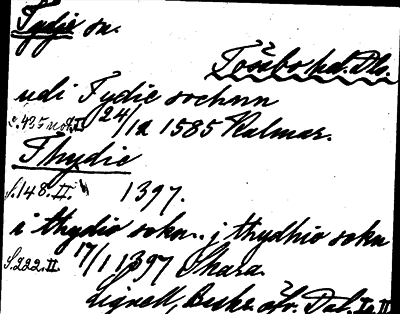 Tydje sn.
Tössbo hd. Dls.
udi Tydie sochnn
s. 435 not II 24/12 1585 Kalmar.
Thydie
S. 148. II. 1397.
i thydio sokn. j thydhio sokn
S. 222. II 17/1 1397 Skara.
Lignell, Beskr. öfv. Dal. I o II